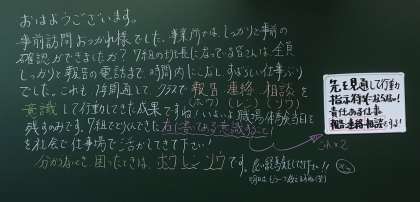 おはようございます。
事前訪問おつかれ様でした。事業所では、しっかりと事前の
確認ができましたか？ 7組の班長になっている皆さんは全員
しっかりと報告の電話まで時間内にこなしすばらしい仕事ぶり
でした。これも1年間通して、クラスで報告 連絡 相談を
(ホウ) (レン) (ソウ)
意識して行動してきた成果ですね！いよいよ職場体験当日を
残すのみです。7組でとりくんできた
を社会で仕事場で活かしてきて下さい！
分からないとき、困ったときは、ホウレンソウです。
先を見通して行動
指示待ちにならない！
責任ある仕事
報告・連絡・相談をする！